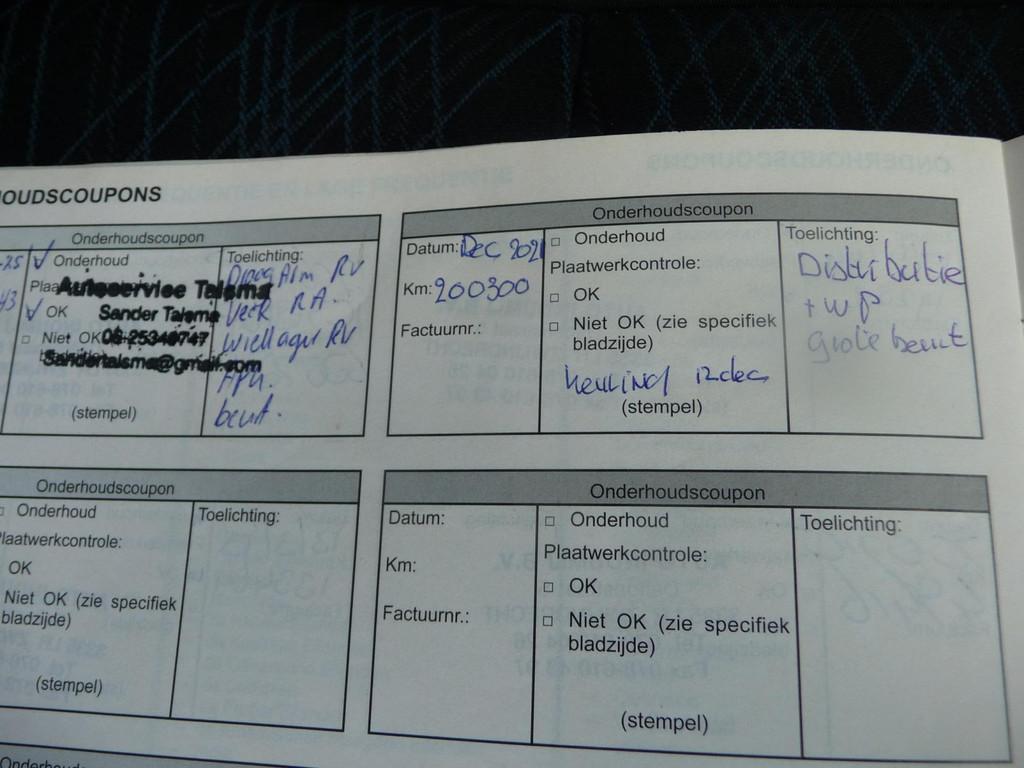 OUDSCOUPONS
Onderhoudscoupon
-25 Onderhoud
Toelichting:
Draag Arm RV
Autoservice Talsma
OK
Sander Talsma
Veer RA.
Niet OK
06-25346747
Wiellager RV
Sandertalsma@gmail.com
beurt.
(stempel)
Onderhoudscoupon
Datum: Dec 2021
Km: 200300
Factuurnr.:
□ Onderhoud
Plaatwerkcontrole:
□ OK
□ Niet OK (zie specifiek
bladzijde)
keuring 12 dec
(stempel)
Toelichting:
Distributie
+ WP
grote beurt
Onderhoudscoupon
□ Onderhoud
laatwerkcontrole:
OK
Niet OK (zie specifiek
bladzijde)
(stempel)
Toelichting:
Onderhoudscoupon
Datum:
Km:
Factuurnr.:
□ Onderhoud
Plaatwerkcontrole:
□ OK
□ Niet OK (zie specifiek
bladzijde)
(stempel)
Toelichting: